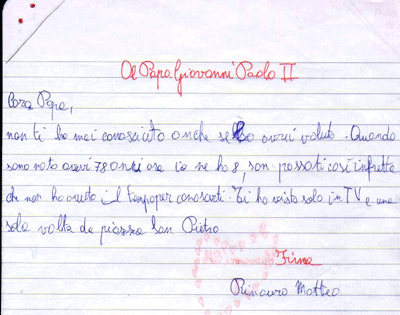 Al Papa Giovanni Paolo II
Caro Papa,
non ti ho mai conosciuto anche se lo avrei voluto. Quando
sono nato avevi 78 anni ora io ne ho 8, son passati così infretta
che non ho avuto il tempo per conoscerti. Ti ho visto solo in TV e una
sola volta da piazza San Pietro
Firma
Rinauro Matteo